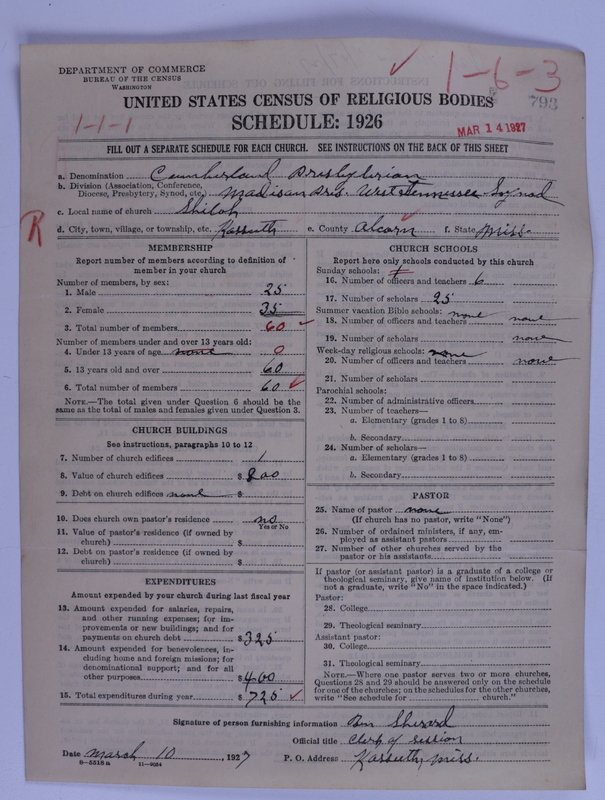 DEPARTMENT OF COMMERCE
BUREAU OF THE CENSUS
WASHINGTON
1-6-3
793
UNITED STATES CENSUS OF RELIGIOUS BODIES
SCHEDULE: 1926
1-1-1
MAR 14 1927
FILL OUT A SEPARATE SCHEDULE FOR EACH CHURCH. SEE INSTRUCTIONS ON THE BACK OF THIS SHEET
a. Denomination Cumberland Presbyterian
b. Division (Association, Conference, Diocese, Presbytery, Synod, etc.) Madison Pres. West Tennessee Synod
c. Local name of church Shiloh
R
d. City, town, village, or township, etc. Kossuth e. County Alcorn f. State Miss.
MEMBERSHIP
Report number of members according to definition of
member in your church
Number of members, by sex:
1. Male 25
2. Female 35
3. Total number of members 60
Number of members under and over 13 years old:
4. Under 13 years of age none 0
5. 13 years old and over 60
6. Total number of members 60
NOTE.—The total given under Question 6 should be
same as the total of males and females given under Question 3.
CHURCH BUILDINGS
See instructions, paragraphs 10 to 12
7. Number of church edifices 1
8. Value of church edifices $800
9. Debt on church edifices none $
10. Does church own pastor's residence no
Yes or No
11. Value of pastor's residence (if owned by
church) $
12. Debt on pastor's residence (if owned by
church) $
EXPENDITURES
Amount expended by your church during last fiscal year
13. Amount expended for salaries, repairs,
and other running expenses; for im-
provements or new buildings; and for
payments on church debt $325
14. Amount expended for benevolences, in-
cluding home and foreign missions; for
denominational support; and for all
other purposes $400
15. Total expenditures during year $725
CHURCH SCHOOLS
Report here only schools conducted by this church
Sunday schools:
16. Number of officers and teachers 6
17. Number of scholars 25
Summer vacation Bible schools: none
18. Number of officers and teachers none
19. Number of scholars none
Week-day religious schools: none
20. Number of officers and teachers none
21. Number of scholars
Parochial schools:
22. Number of administrative officers
23. Number of teachers—
a. Elementary (grades 1 to 8)
b. Secondary
24. Number of scholars—
a. Elementary (grades 1 to 8)
b. Secondary
PASTOR
25. Name of pastor none
(If church has no pastor, write "None")
26. Number of ordained ministers, if any, em-
ployed as assistant pastors
27. Number of other churches served by the
pastor or his assistants
If pastor (or assistant pastor) is a graduate of a college or
theological seminary, give name of institution below. (If
not a graduate, write "No" in the space indicated.)
Pastor:
28. College
29. Theological seminary
Assistant pastor:
30. College
31. Theological seminary
NOTE.—Where one pastor serves two or more churches,
Questions 28 and 29 should be answered only on the schedule
for one of the churches; on the schedules for the other churches,
write "See schedule for church."
Signature of person furnishing information
Official title Clerk of session
Date March 10, 1927 P. O. Address Kossuth, Miss.
8-5518a 11-9064